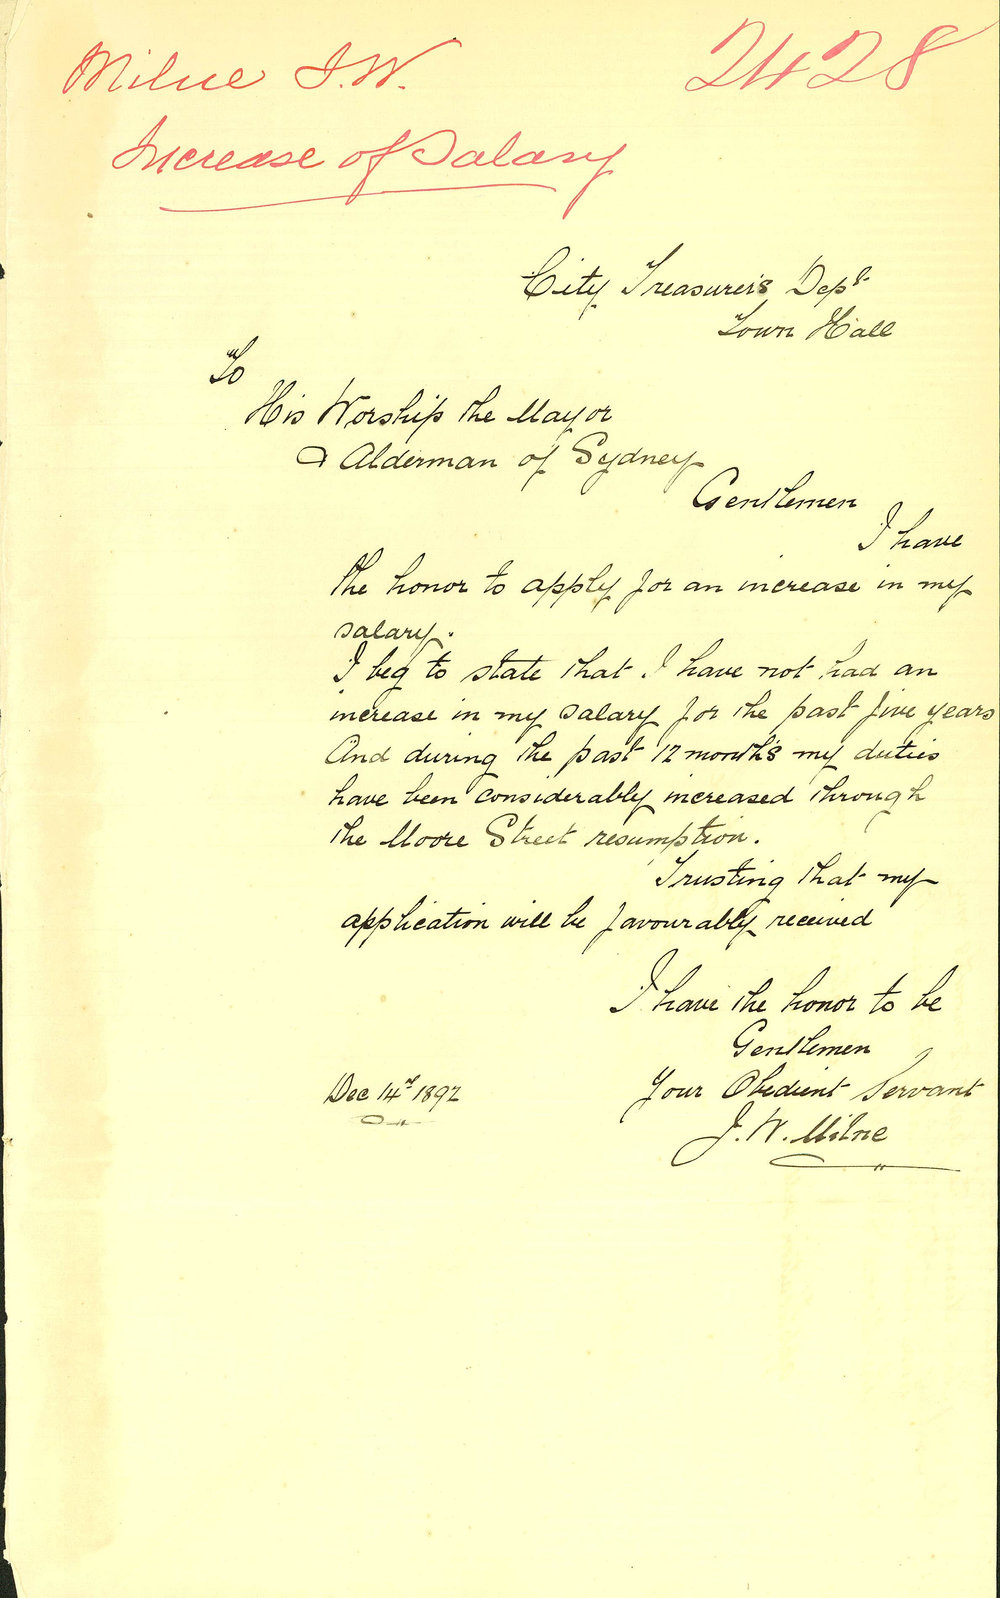 Milne J.W. 2428
Increase of Salary
City Treasurer's Dept
Town Hall
To
His Worship the Mayor
& Alderman of Sydney
Gentlemen
I have
the honor to apply for an increase in my
salary.
I beg to state that I have not had an
increase in my salary for the past five years
And during the past 12 month's my duties
have been considerably increased through
the Moore Street resumption.
Trusting that my
application will be favourably received
I have the honor to be
Gentlemen
Dec 14th 1892 Your Obedient Servant
J. W. Milne